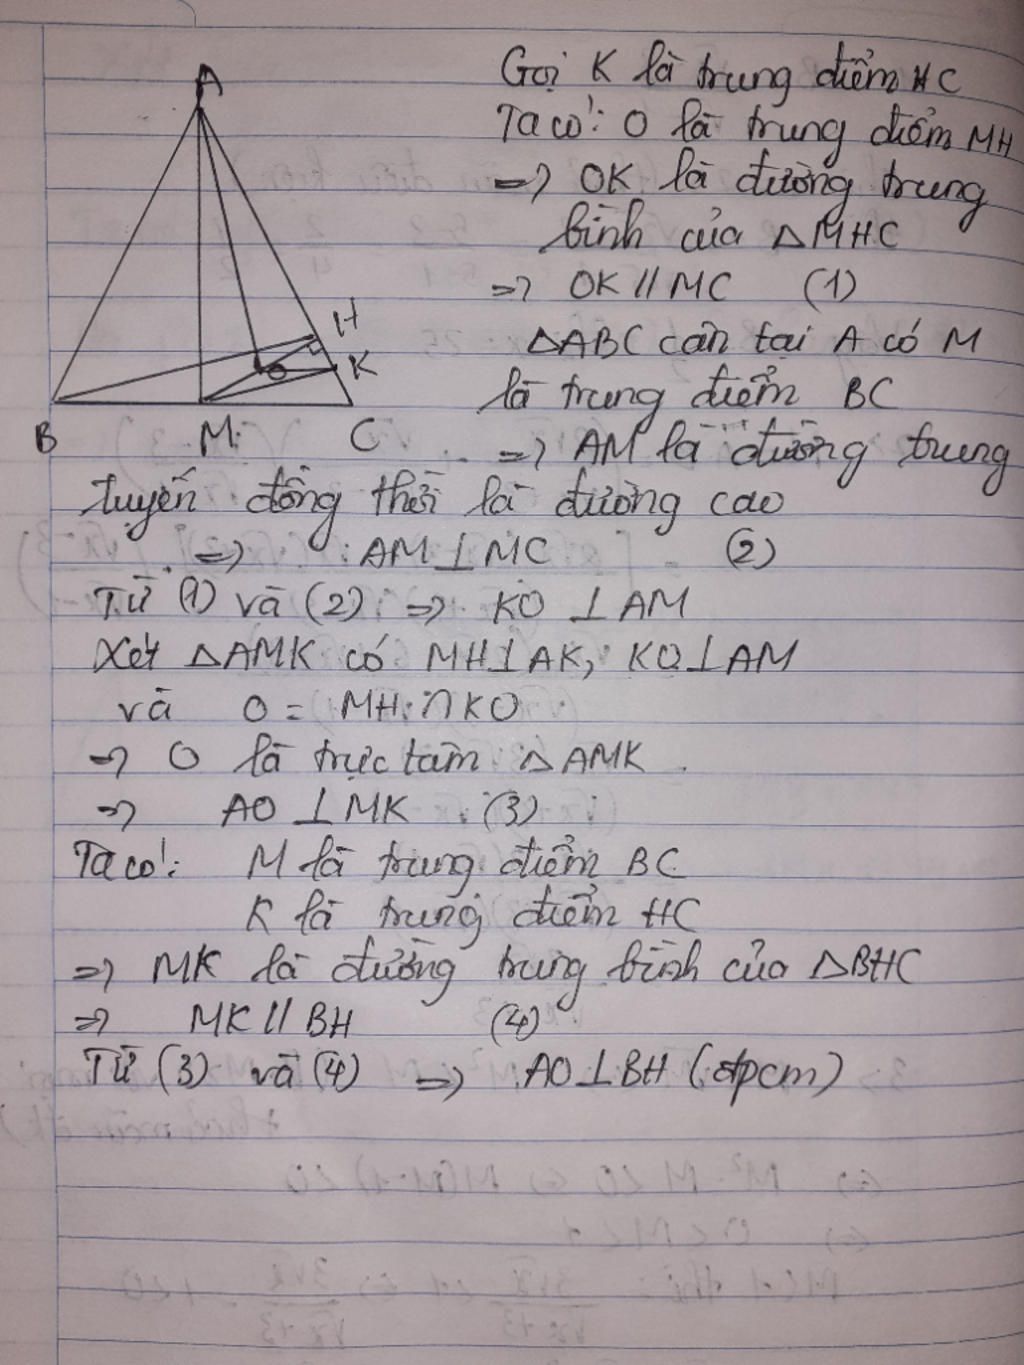 A
H
O
K
B
M
C
Gọi K là trung điểm HC
Ta có: O là trung điểm MH
=> OK là đường trung
bình của △MHC
=> OK // MC (1)
△ABC cân tại A có M
là trung điểm BC
=> AM là đường trung
tuyến đồng thời là đường cao
=> AM ⊥ MC (2)
Từ (1) và (2) => KO ⊥ AM
Xét △AMK có MH ⊥ AK, KO ⊥ AM
và O = MH ∩ KO
=> O là trực tâm △AMK
=> AO ⊥ MK (3)
Ta có: M là trung điểm BC
K là trung điểm HC
=> MK là đường trung bình của △BHC
=> MK // BH (4)
Từ (3) và (4) => AO ⊥ BH (đpcm)